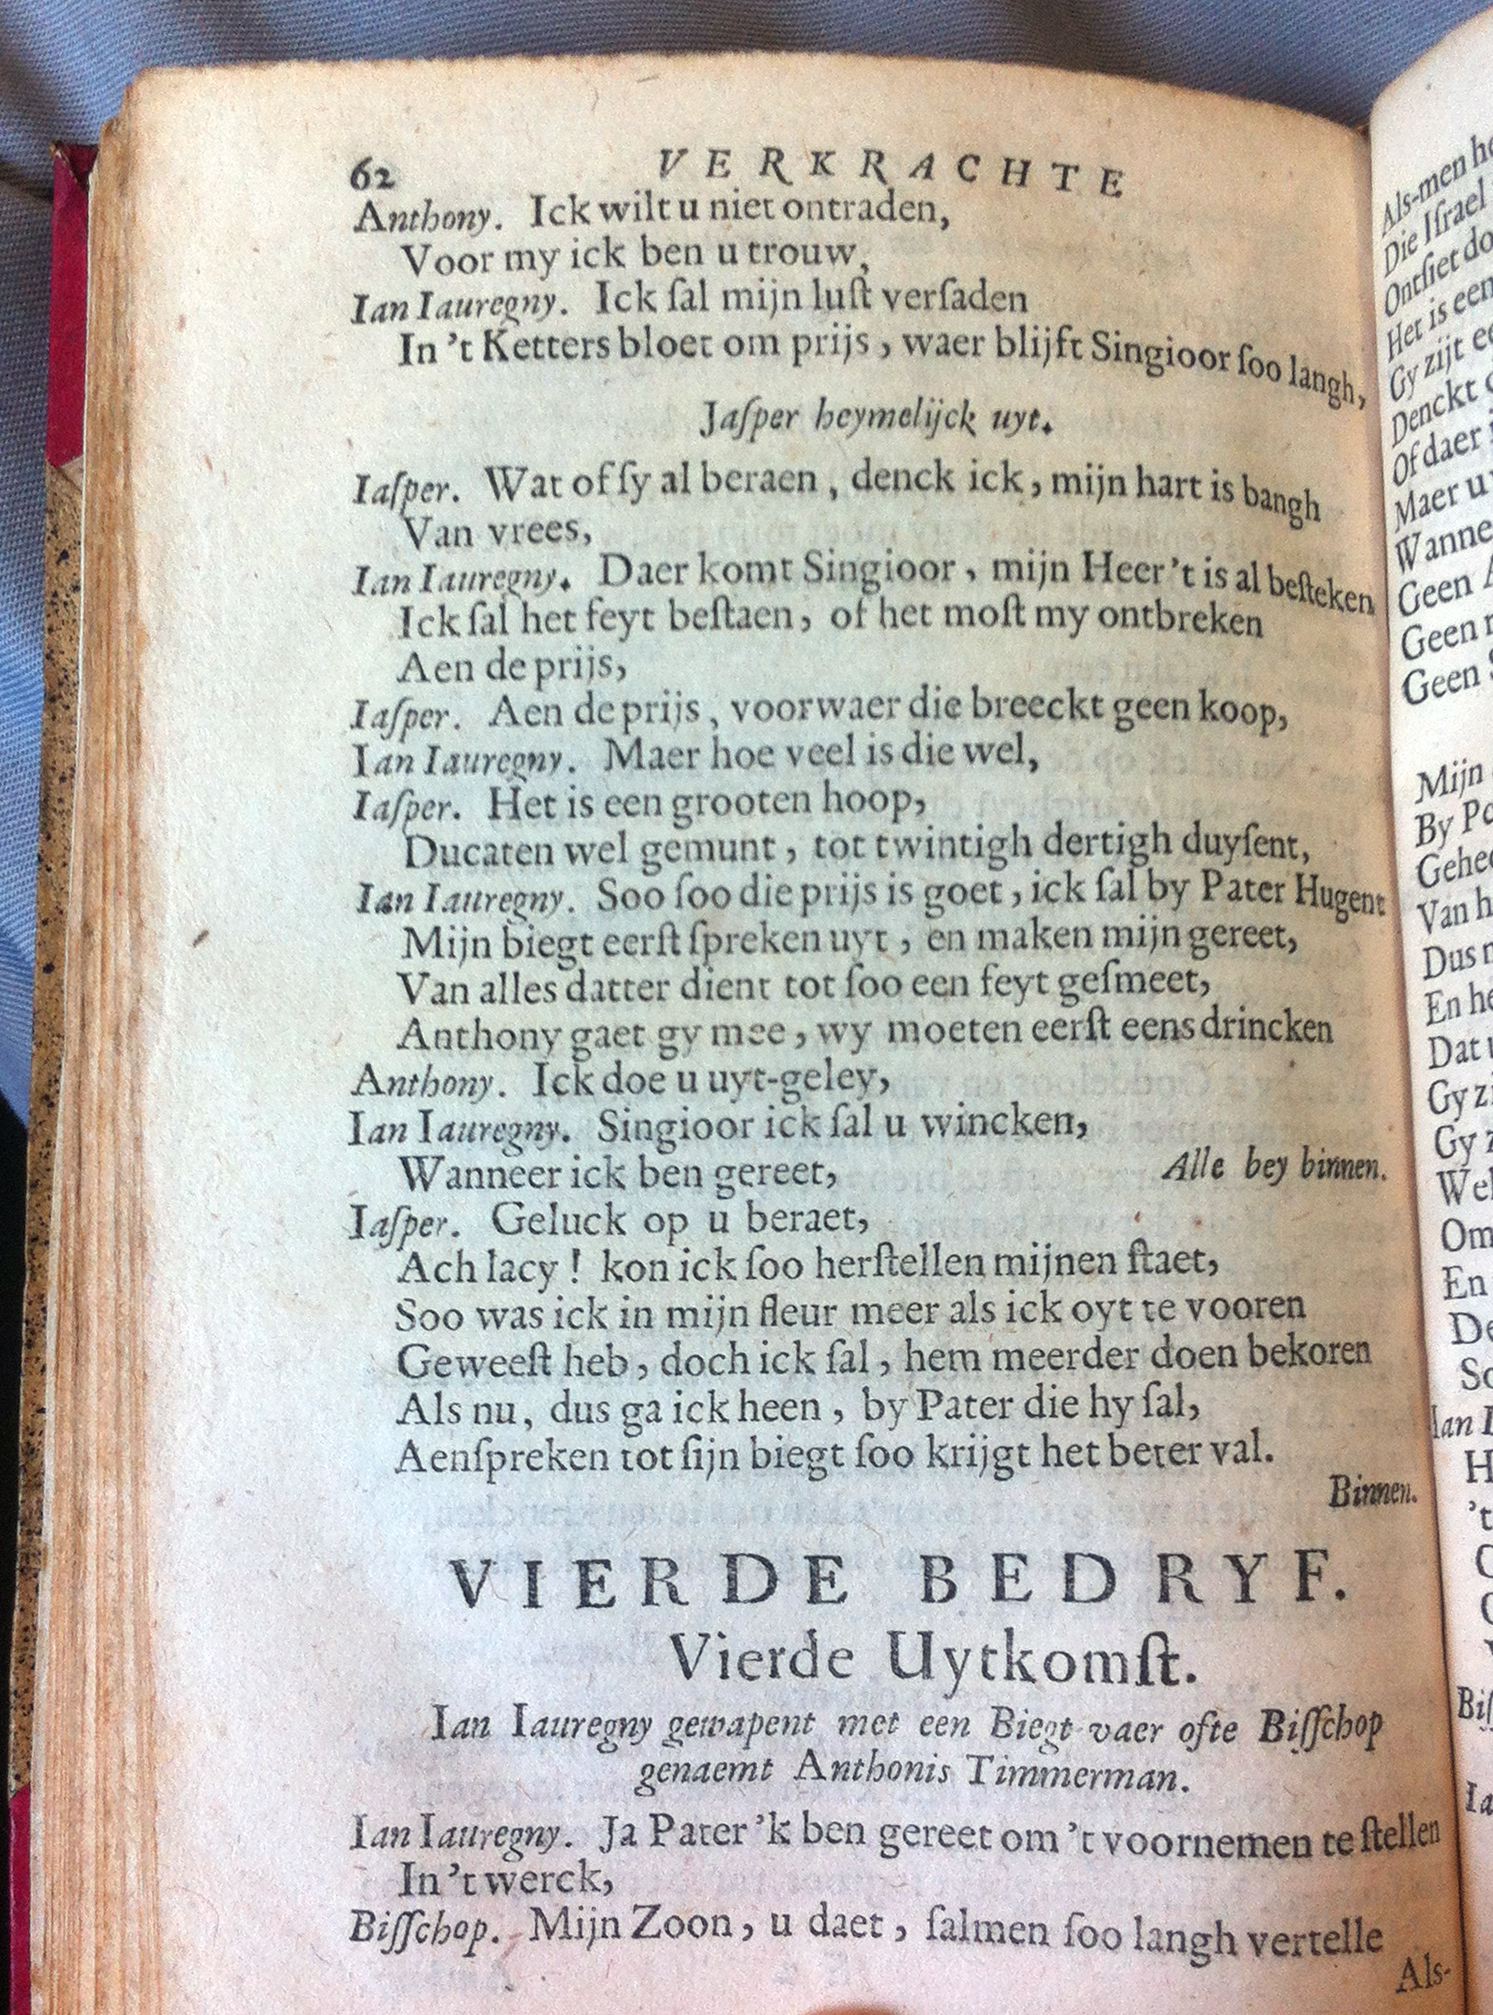 62 VERKRACHTE
Anthony. Ick wilt u niet ontraden,
Voor my ick ben u trouw,
Ian Iauregny. Ick ſal mijn luſt verſaden
In 't Ketters bloet om prijs, waer blijft Singioor ſoo langh,
Jaſper heymelijck uyt.
Iaſper. Wat of ſy al beraen, denck ick, mijn hart is bangh
Van vrees,
Ian Iauregny. Daer komt Singioor, mijn Heer 't is al beſteken
Ick ſal het feyt beſtaen, of het moſt my ontbreken
Aen de prijs,
Iaſper. Aen de prijs, voorwaer die breeckt geen koop,
Ian Iauregny. Maer hoe veel is die wel,
Iaſper. Het is een grooten hoop,
Ducaten wel gemunt, tot twintigh dertigh duyſent,
Ian Iauregny. Soo ſoo die prijs is goet, ick ſal by Pater Hugent
Mijn biegt eerſt ſpreken uyt, en maken mijn gereet,
Van alles datter dient tot ſoo een feyt geſmeet,
Anthony gaet gy mee, wy moeten eerſt eens drincken
Anthony. Ick doe u uyt-geley,
Ian Iauregny. Singioor ick ſal u wincken,
Wanneer ick ben gereet, Alle bey binnen.
Iaſper. Geluck op u beraet,
Ach lacy! kon ick ſoo herſtellen mijnen ſtaet,
Soo was ick in mijn fleur meer als ick oyt te vooren
Geweeſt heb, doch ick ſal, hem meerder doen bekoren
Als nu, dus ga ick heen, by Pater die hy ſal,
Aenſpreken tot ſijn biegt ſoo krijgt het beter val.
Binnen.
VIERDE BEDRYF.
Vierde Uytkomſt.
Ian Iauregny gewapent met een Biegt-vaer ofte Biſſchop
genaemt Anthonis Timmerman.
Ian Iauregny. Ja Pater 'k ben gereet om 't voornemen te ſtellen
In 't werck,
Biſſchop. Mijn Zoon, u daet, ſalmen ſoo langh vertelle
Als-
Als-men
Die Iſrael
Ontſiet
Het is een
Gy zijt
Denckt
Of daer
Maer
Wanne
Geen
Geen
Geen
Mijn
By
Gehee
Van
Dus
En
Dat
Gy
Gy
Wel
Om
En
Ian